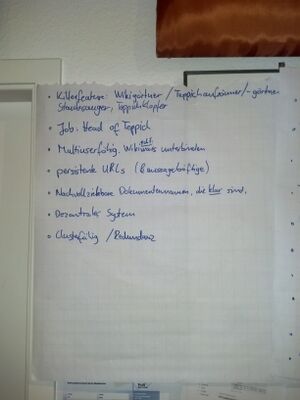 • Killerfeature: Wikigärtner / Teppichaufräumer / -gärtner
Staubsauger, Teppichklopfer
• Job: Head of Teppich
• Multiuserfähig, Wiki unterbinden
• persistente URLs (& aussagekräftige)
• Nachvollziehbare Dokumentennamen, die klar sind.
• Dezentrales System
• Clusterfähig / Redundanz